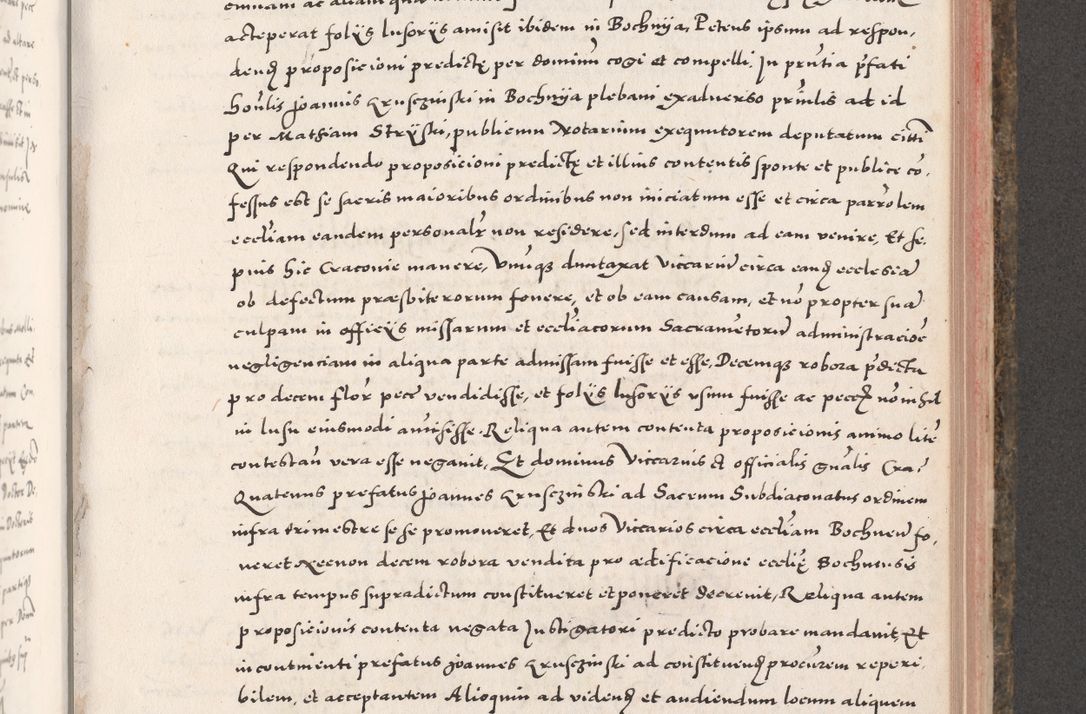 acceperat folijs lusorijs amisit ibidem in Bochnya, Petens ipsum ad respon,
dend proposicioni predictę per dominū cogi et compelli. In pntia pfati
Honlis Joannis Krusczinski in Bochnya plebani exaduerso pnlis ad id
per Mathiam Stryski, publicum Notarium exequutorem deputatum citti
Qui respondendo proposicioni predictę et illius contentis sponte et publice co,
fessus est se sacris maioribus ordinibus non iniciatum esse et circa parrolem
eccliam eandem personalr non residere, sed interdum ad eam venire, Et se,
pius hic Cracouie manere, Vnūq duntaxat Viccariū circa eand ecclesia
ob defectum præsbiterorum fouere, et ob eam causam, et no propter sua
culpam in officijs missarum et eccliacorum Sacramētorū administracioe
negligenciam in aliqua parte admissam fuisse et esse, Decemq robora pdicta
pro decem flor pece vendidisse, et folijs lusorijs vsum fuisse ac pecc no nihil
in lusu eiusmodi amisisse. Reliqua autem contenta proposicionis animo lite
contestan vera esse negauit, Et dominus Viccarius et officialis gnalis Cra,
Quatenus prefatus Joannes Krusczinski ad Sacrum Subdiaconatus ordinem
infra trimestre se se promoueret, Et duos Viccarios circa eccliam Bochnen fo,
ueret Necnon decem robora vendita pro ædificacione ecclię Bochnensis
infra tempus supradictum constitueret et poneret decreuit, Reliqua autem
proposicionis contenta negata Instigatori predicto probare mandauit, Et
in continenti prefatus Joannes Krusczinski ad constituend procurem reperi,
bilem, et acceptantem Alioquin ad vidend et audiendum locum aliquem